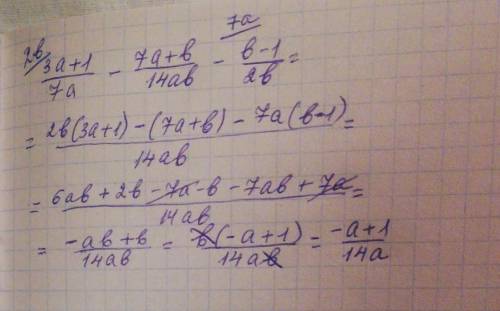 2b/ (3a+1)/(7a) - (7a+b)/(14ab) - 7a/ (b-1)/(2b) =
= (2b(3a+1)-(7a+b)-7a(b-1))/(14ab) =
= (6ab+2b-7a-b-7ab+7a)/(14ab) =
= (-ab+b)/(14ab) = (b(-a+1))/(14ab) = (-a+1)/(14a)